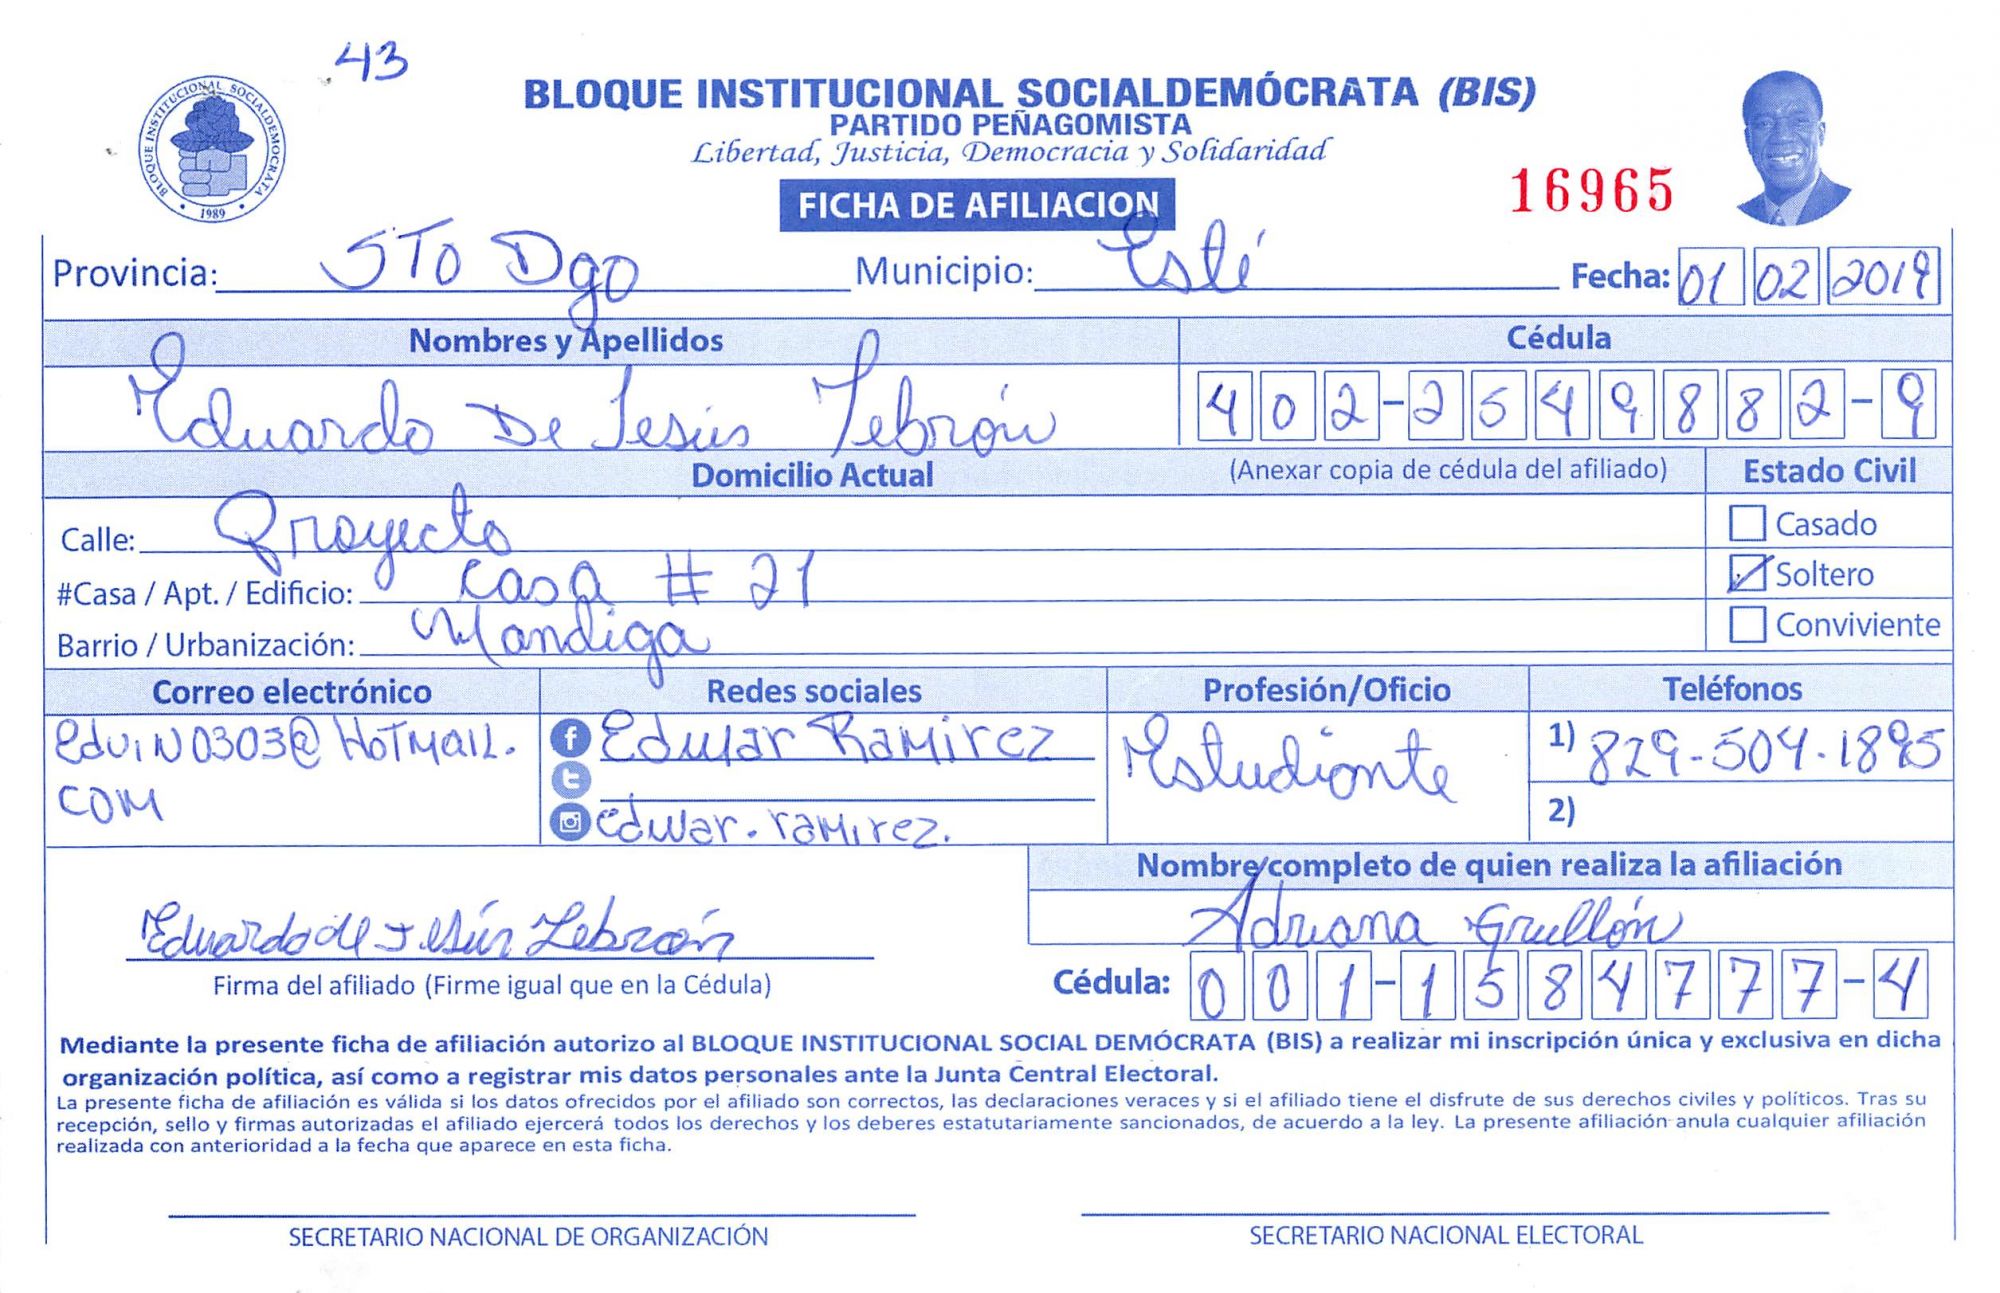 43
BLOQUE INSTITUCIONAL SOCIALDEMÓCRATA (BIS)
PARTIDO PEÑAGOMISTA
Libertad, Justicia, Democracia y Solidaridad
BLOQUE INSTITUCIONAL SOCIALDEMOCRATA
1989
FICHA DE AFILIACION
16965
Provincia: STO Dgo Municipio: Esté Fecha: 01 02 2019
Nombres y Apellidos Cédula
Eduardo De Jesús Lebrón 402-2549882-9
Domicilio Actual (Anexar copia de cédula del afiliado) Estado Civil
Calle: Proyecto Casado
#Casa / Apt. / Edificio: casa # 21 Soltero
Barrio / Urbanización: Mandiga Conviviente
Correo electrónico Redes sociales Profesión/Oficio Teléfonos
EduiN0303@HOTMAIL. Edular Ramirez Estudiante 1) 829-504-1895
COM
edular.ramirez. 2)
Nombre completo de quien realiza la afiliación
Eduardo de Jesús Lebrón Adriana Grullón
Firma del afiliado (Firme igual que en la Cédula) Cédula: 001-1584777-4
Mediante la presente ficha de afiliación autorizo al BLOQUE INSTITUCIONAL SOCIAL DEMÓCRATA (BIS) a realizar mi inscripción única y exclusiva en dicha
organización política, así como a registrar mis datos personales ante la Junta Central Electoral.
La presente ficha de afiliación es válida si los datos ofrecidos por el afiliado son correctos, las declaraciones veraces y si el afiliado tiene el disfrute de sus derechos civiles y políticos. Tras su
recepción, sello y firmas autorizadas el afiliado ejercerá todos los derechos y los deberes estatutariamente sancionados, de acuerdo a la ley. La presente afiliación anula cualquier afiliación
realizada con anterioridad a la fecha que aparece en esta ficha.
SECRETARIO NACIONAL DE ORGANIZACIÓN SECRETARIO NACIONAL ELECTORAL